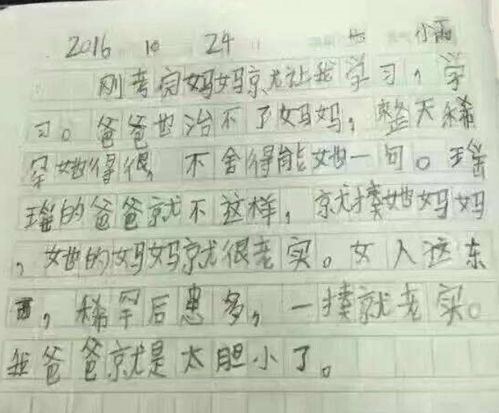 2016 10 24 小雨
刚考完妈妈就让我学习,学
习。爸爸也治不了妈妈,整天稀
罕她得很,不舍得能她一句。瑶
瑶的爸爸就不这样,就揍她妈妈
,她的妈妈就很老实。女人这东
西,稀罕后患多,一揍就老实。
我爸爸就是太胆小了。